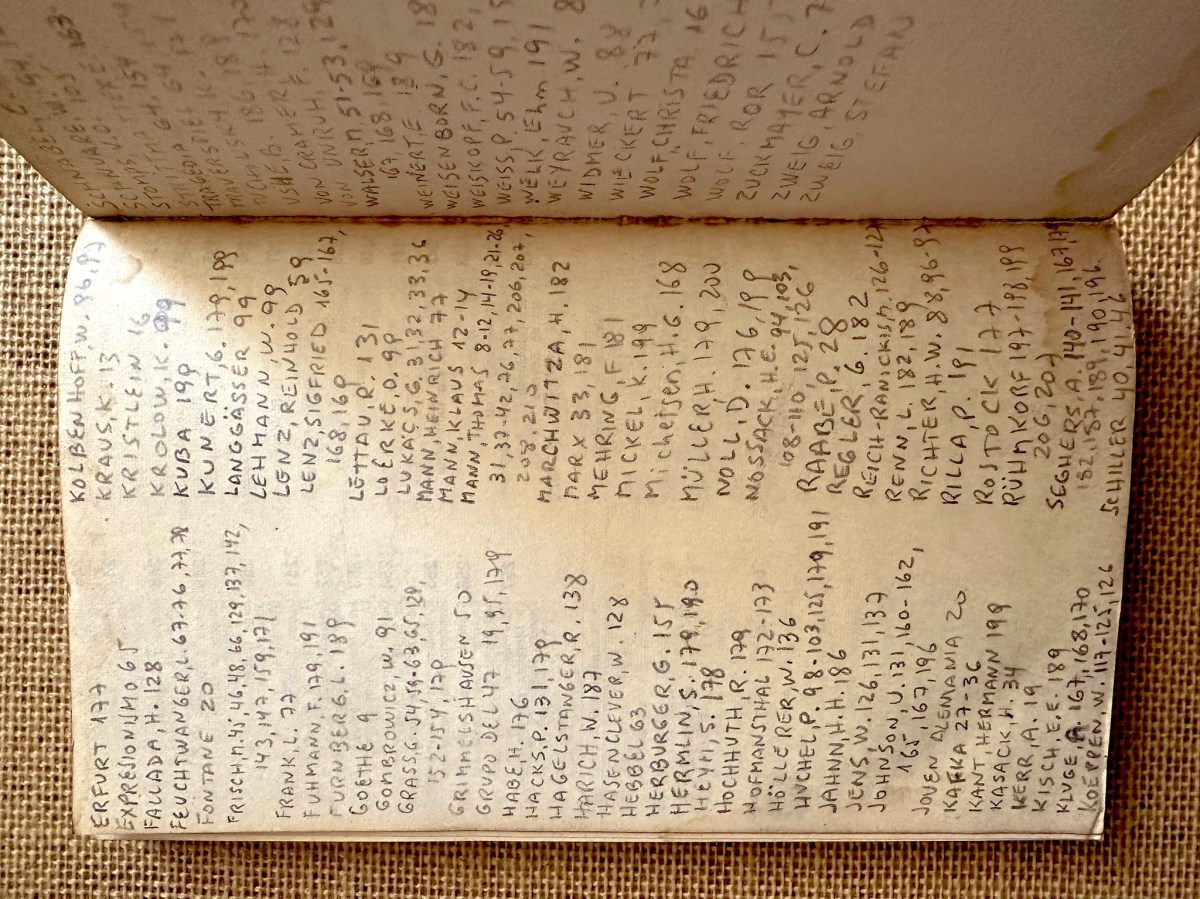 ERFURT 177
EXPRESIONISMO 65
FALLADA, H. 128
FEUCHTWANGER, L. 67.76,77,78
FONTANE 20
FRISCH, M. 45, 46, 48, 66, 129, 137, 142,
143, 147, 159, 171
FRANK, L. 77
FUHMANN, F. 179, 191
FURNBERG, L. 189
GOETHE 9
GOMBROWICZ, W. 91
GRASS, G. 54, 59-63, 65, 129,
152-154, 170
GRIMMELSHAUSEN 50
GRUPO DEL 47 19, 95, 179
HABE, H. 176
HACKS, P. 131, 179
HAGELSTANGER, R. 138
HARICH W. 187
HASENCLEVER, W. 128
HEBBEL 63
HERBURGER, G. 155
HERMLIN, S. 179, 190
HEYM, S. 178
HOCHHUTH, R. 179
HOFMANSTHAL 172-173
HÖLLERER, W. 136
HUCHEL, P. 98-103, 125, 179, 191
JAHNN, H.H. 86
JENS, W. 126, 131, 137
JOHNSON, U. 131, 160-162,
165, 167, 196
JOVEN ALEMANIA 20
KAFKA 27-36
KANT HERMANN 199
KASACK, H. 34
KERR, A. 19
KISCH, E.E. 189
KLUGE, A. 167, 168, 170
KOEPPEN, W. 117-125, 126
KOLBENHOFF, W. 96, 97
KRAUS, K. 13
KRISTLEIN 16
KROLOW, K. 99
KUBA 199
KUNERT, G. 179, 199
LANGGÄSSER 99
LEHMANN, W. 99
LENZ, REINHOLD 59
LENZ, SIGFRIED 165-167,
168, 169
LETTAU, R. 131
LOERKE, O. 99
LUKACS, G. 31, 32, 33, 36
MANN, HEINRICH 77
MANN, KLAUS 12-14
MANN, THOMAS 8-12, 14-19, 21-26,
31, 37-42, 76, 77, 206, 207,
208, 210
MARCHWITZA, H. 182
MARX 33, 181
MEHRING, F 181
MICKEL, K. 199
Michelsen, H.G. 168
MÜLLER H. 179, 200
NOLL, D. 176, 199
NOSSACK, H.E. 94, 103,
108-110, 125, 126,
RAABE, P. 28
REGLER, G. 182
REICH-RANICKI, M. 126-127
RENN, L. 182, 189
RICHTER, H.W. 88, 96-97
RILLA, P. 191
ROSTOCK 177
RÜHMKORF 197-198, 199
206, 207
SEGHERS, A. 140-141, 167, 179
182, 187, 189, 190, 196.
SCHILLER 40, 41, 46
STOMPS, V.O.
VON UNRUH, F. 129
VON CRAMER, H. 128
WALSER, M. 51-53, 129
167, 168, 169
WEINERT E 189
WEISENBORN, G. 18
WEISKOPF, F.C. 182,
WEISS, P. 54-59, 15
WELK, Ehm 191
WEYRAUCH, W. 8
WIDMER, U. 88
WIECKERT 77,
WOLF, CHRISTA 16
WOLF, FRIEDRICH
WOLF, ROR 15
ZUCKMAYER, C. 7
ZWEIG, ARNOLD
ZWEIG, STEFAN